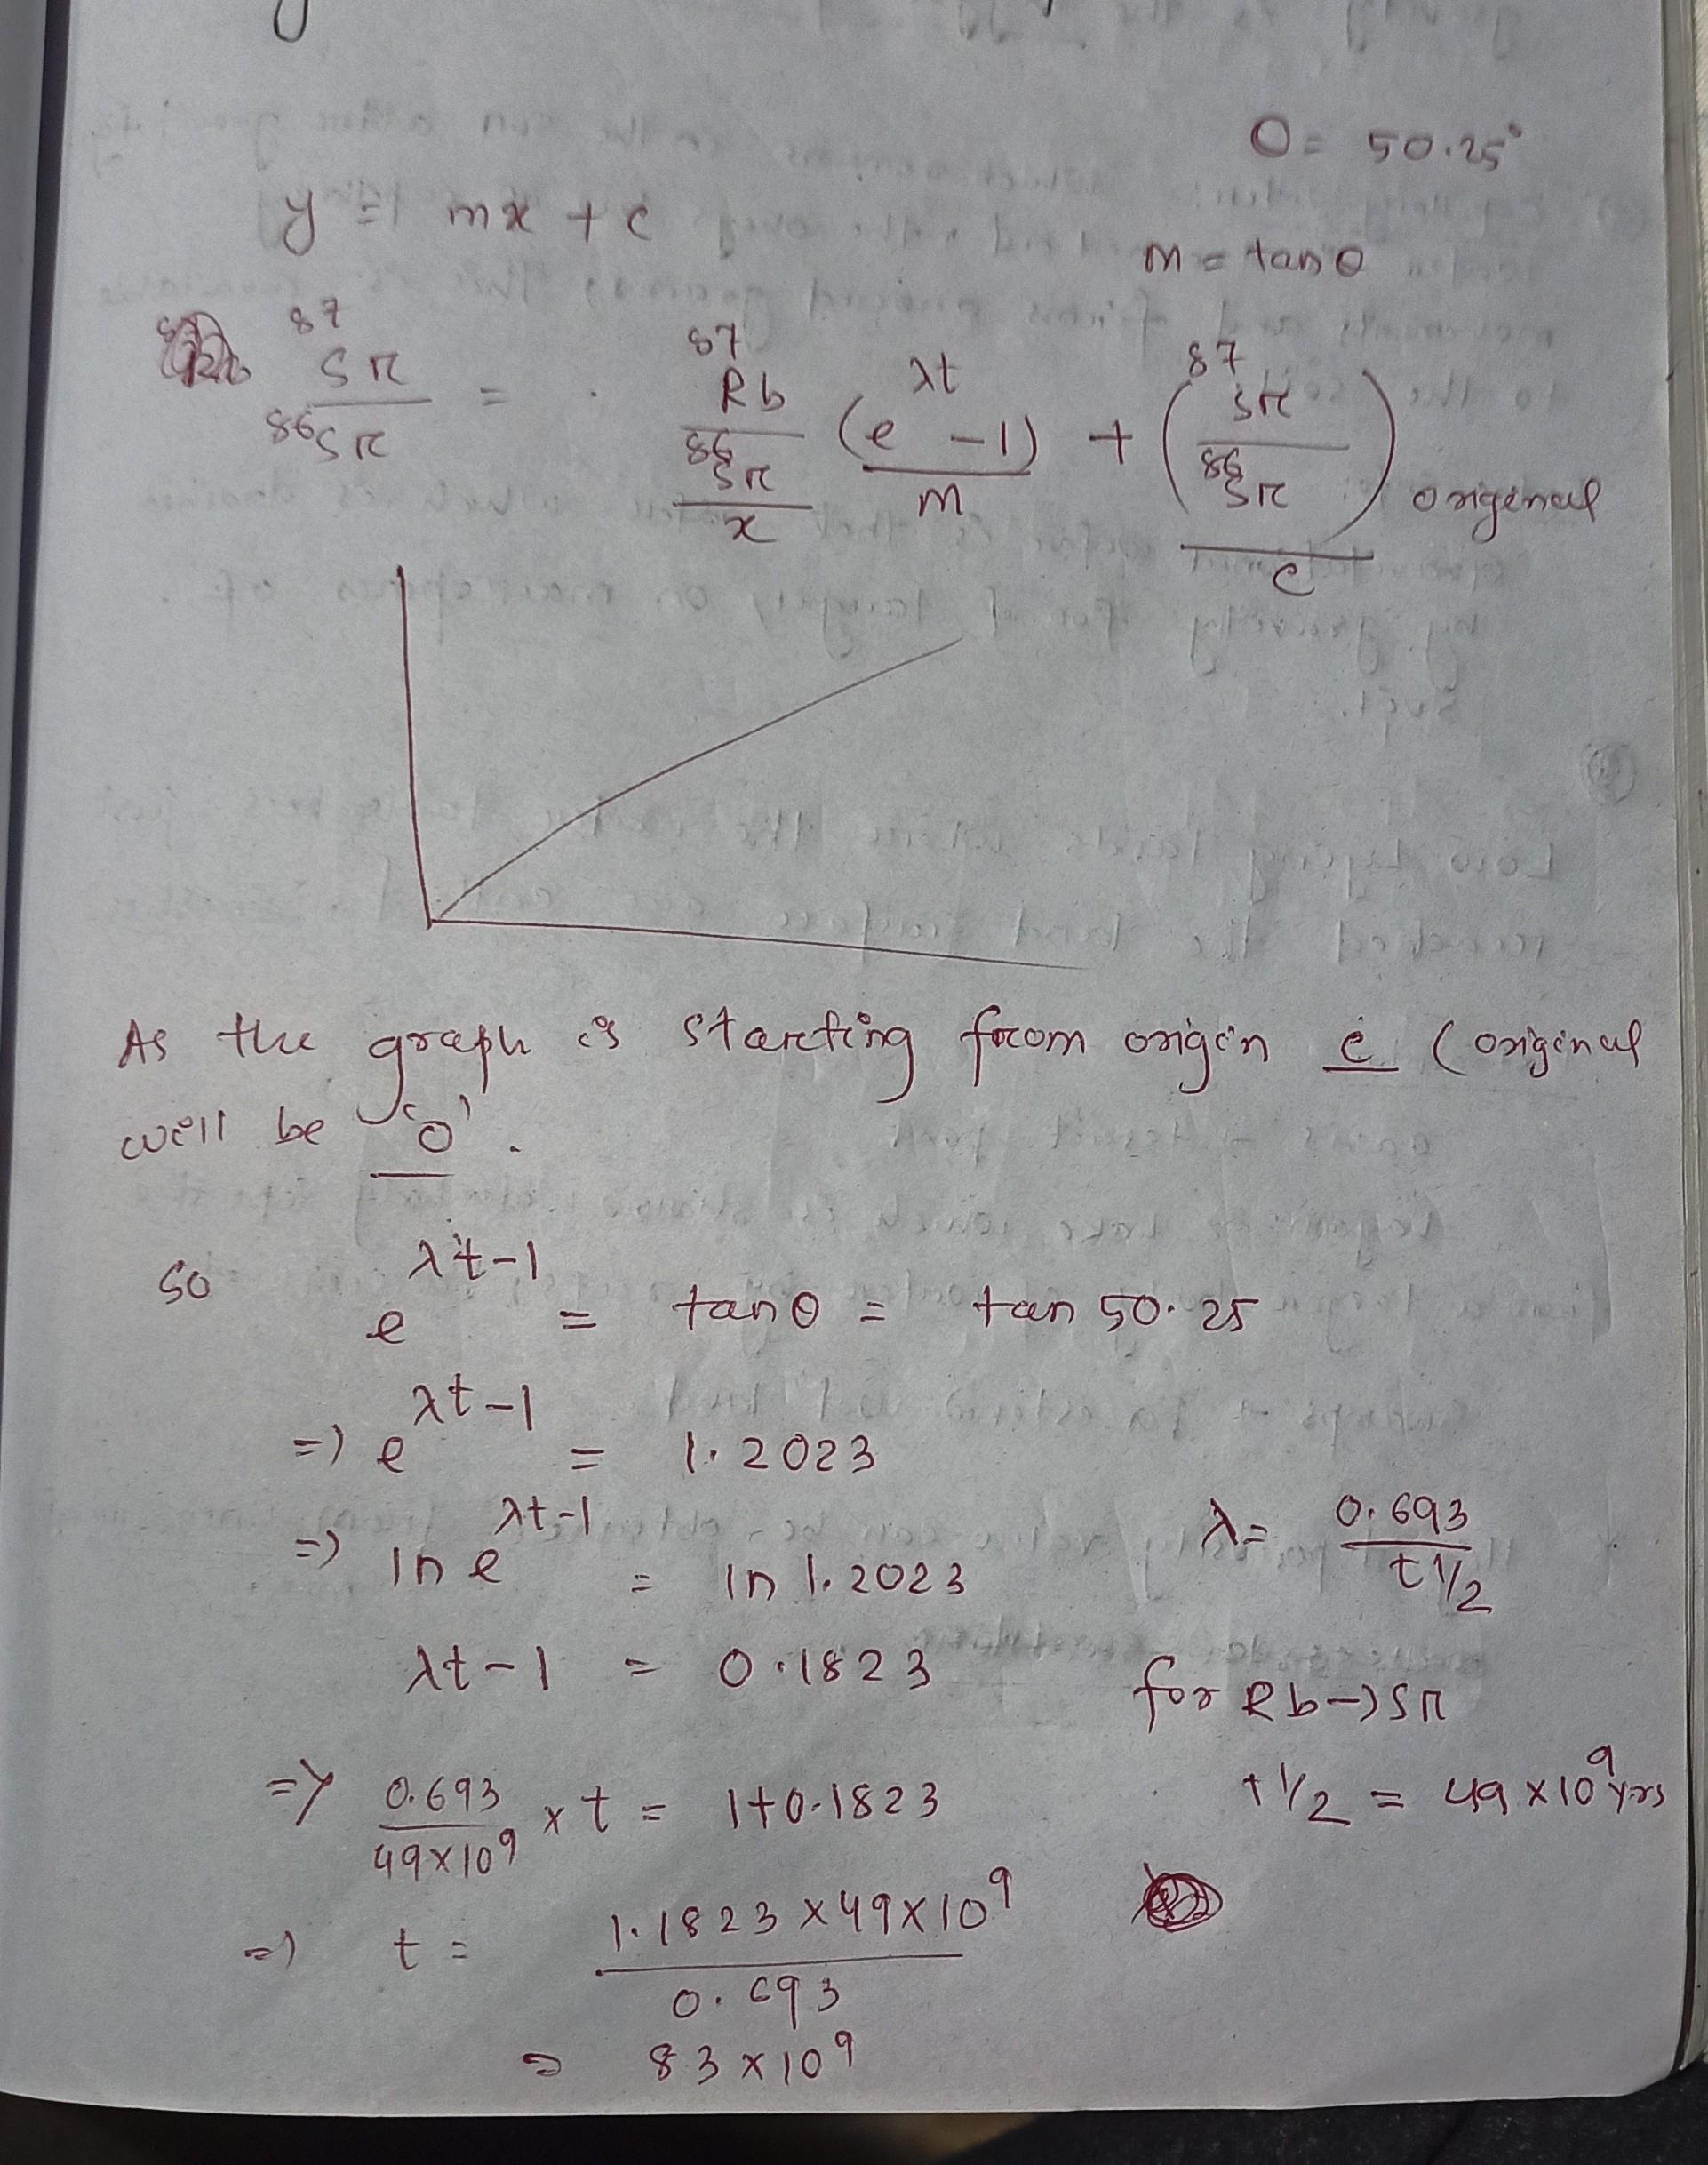 θ = 50.25°
y = mx + c
m = tanθ
87Sr/86Sr = 87Rb/86Sr (e^λt - 1) + (87Sr/86Sr) original
x m c
As the graph is starting from origin c (original
will be '0'.
so e^λt-1 = tanθ = tan 50.25
=> e^λt-1 = 1.2023
=> ln e^λt-1 = ln 1.2023
λ = 0.693/t1/2
λt-1 = 0.1823
for Rb->Sr
=> 0.693/49x10^9 x t = 1+0.1823
t1/2 = 49 x 10^9 yrs
=> t = 1.1823 x 49 x 10^9/0.693
= 83 x 10^9